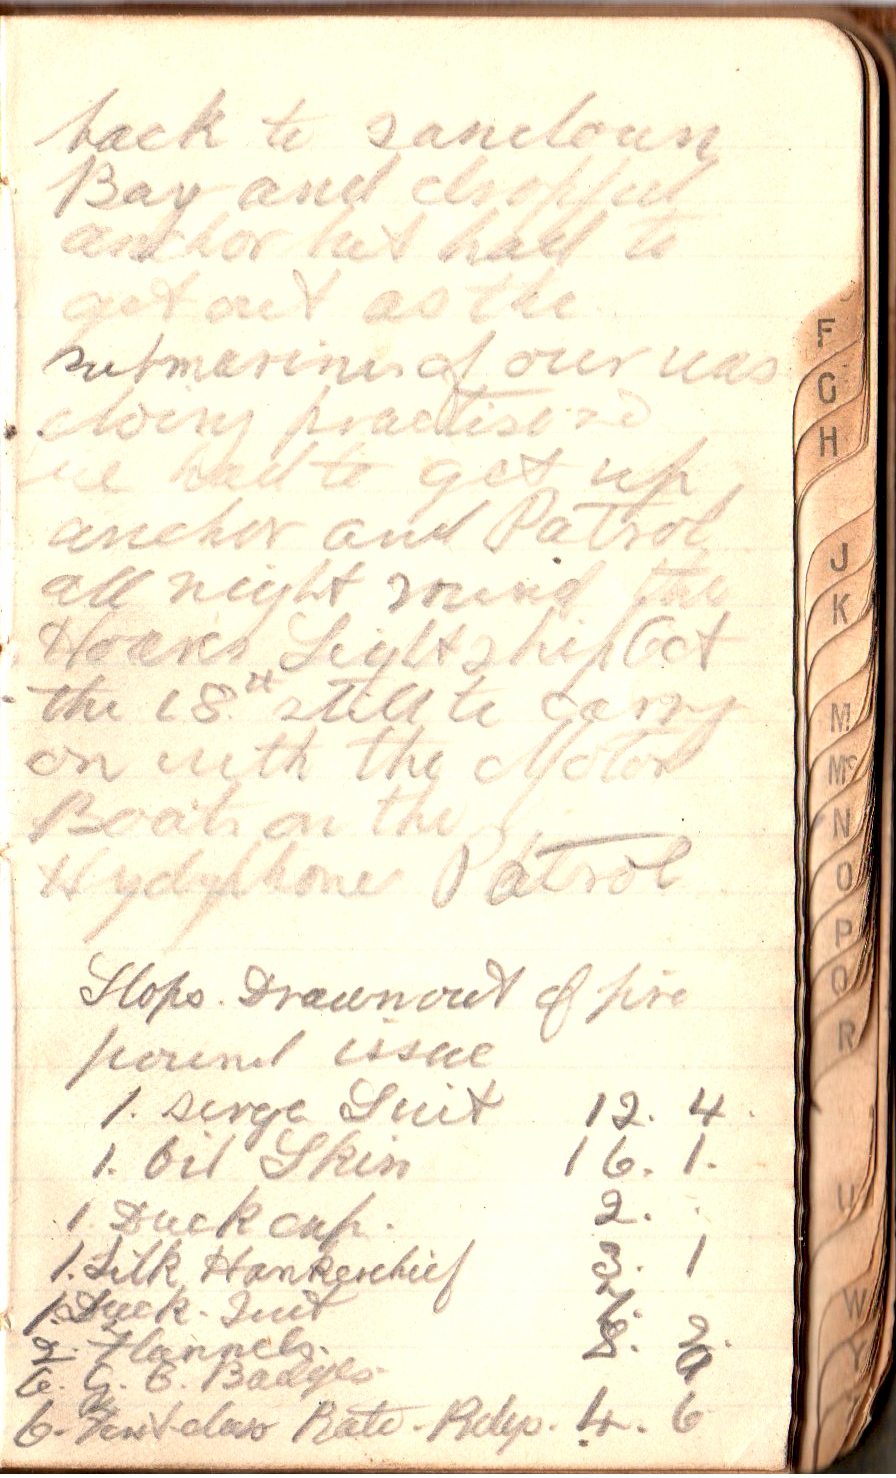 back to Sandown
Bay and dropped
anchor but had to
get out as the
submarines of our was
doing practise and
we had to get up
anchor and Patrol
all night round the
Lightship Oct
the 18th still to carry
on with the Motor
Boats on the
Hydyphone Patrol
Slops. Drawn out of five
pound issue
1. Serge Suit 12. 4.
1. Oil Skin 16. 1.
1. Duck cap. 2. .
1. Silk Hankerchief 3. 1
1. Duck. Suit 7.
2. Flannels. 8. 2.
6. G. C. Badges. 9
6. Rate. 4. 6
F
G
H
J
K
M
Mc
N
O
P
Q
R
U
W
Y